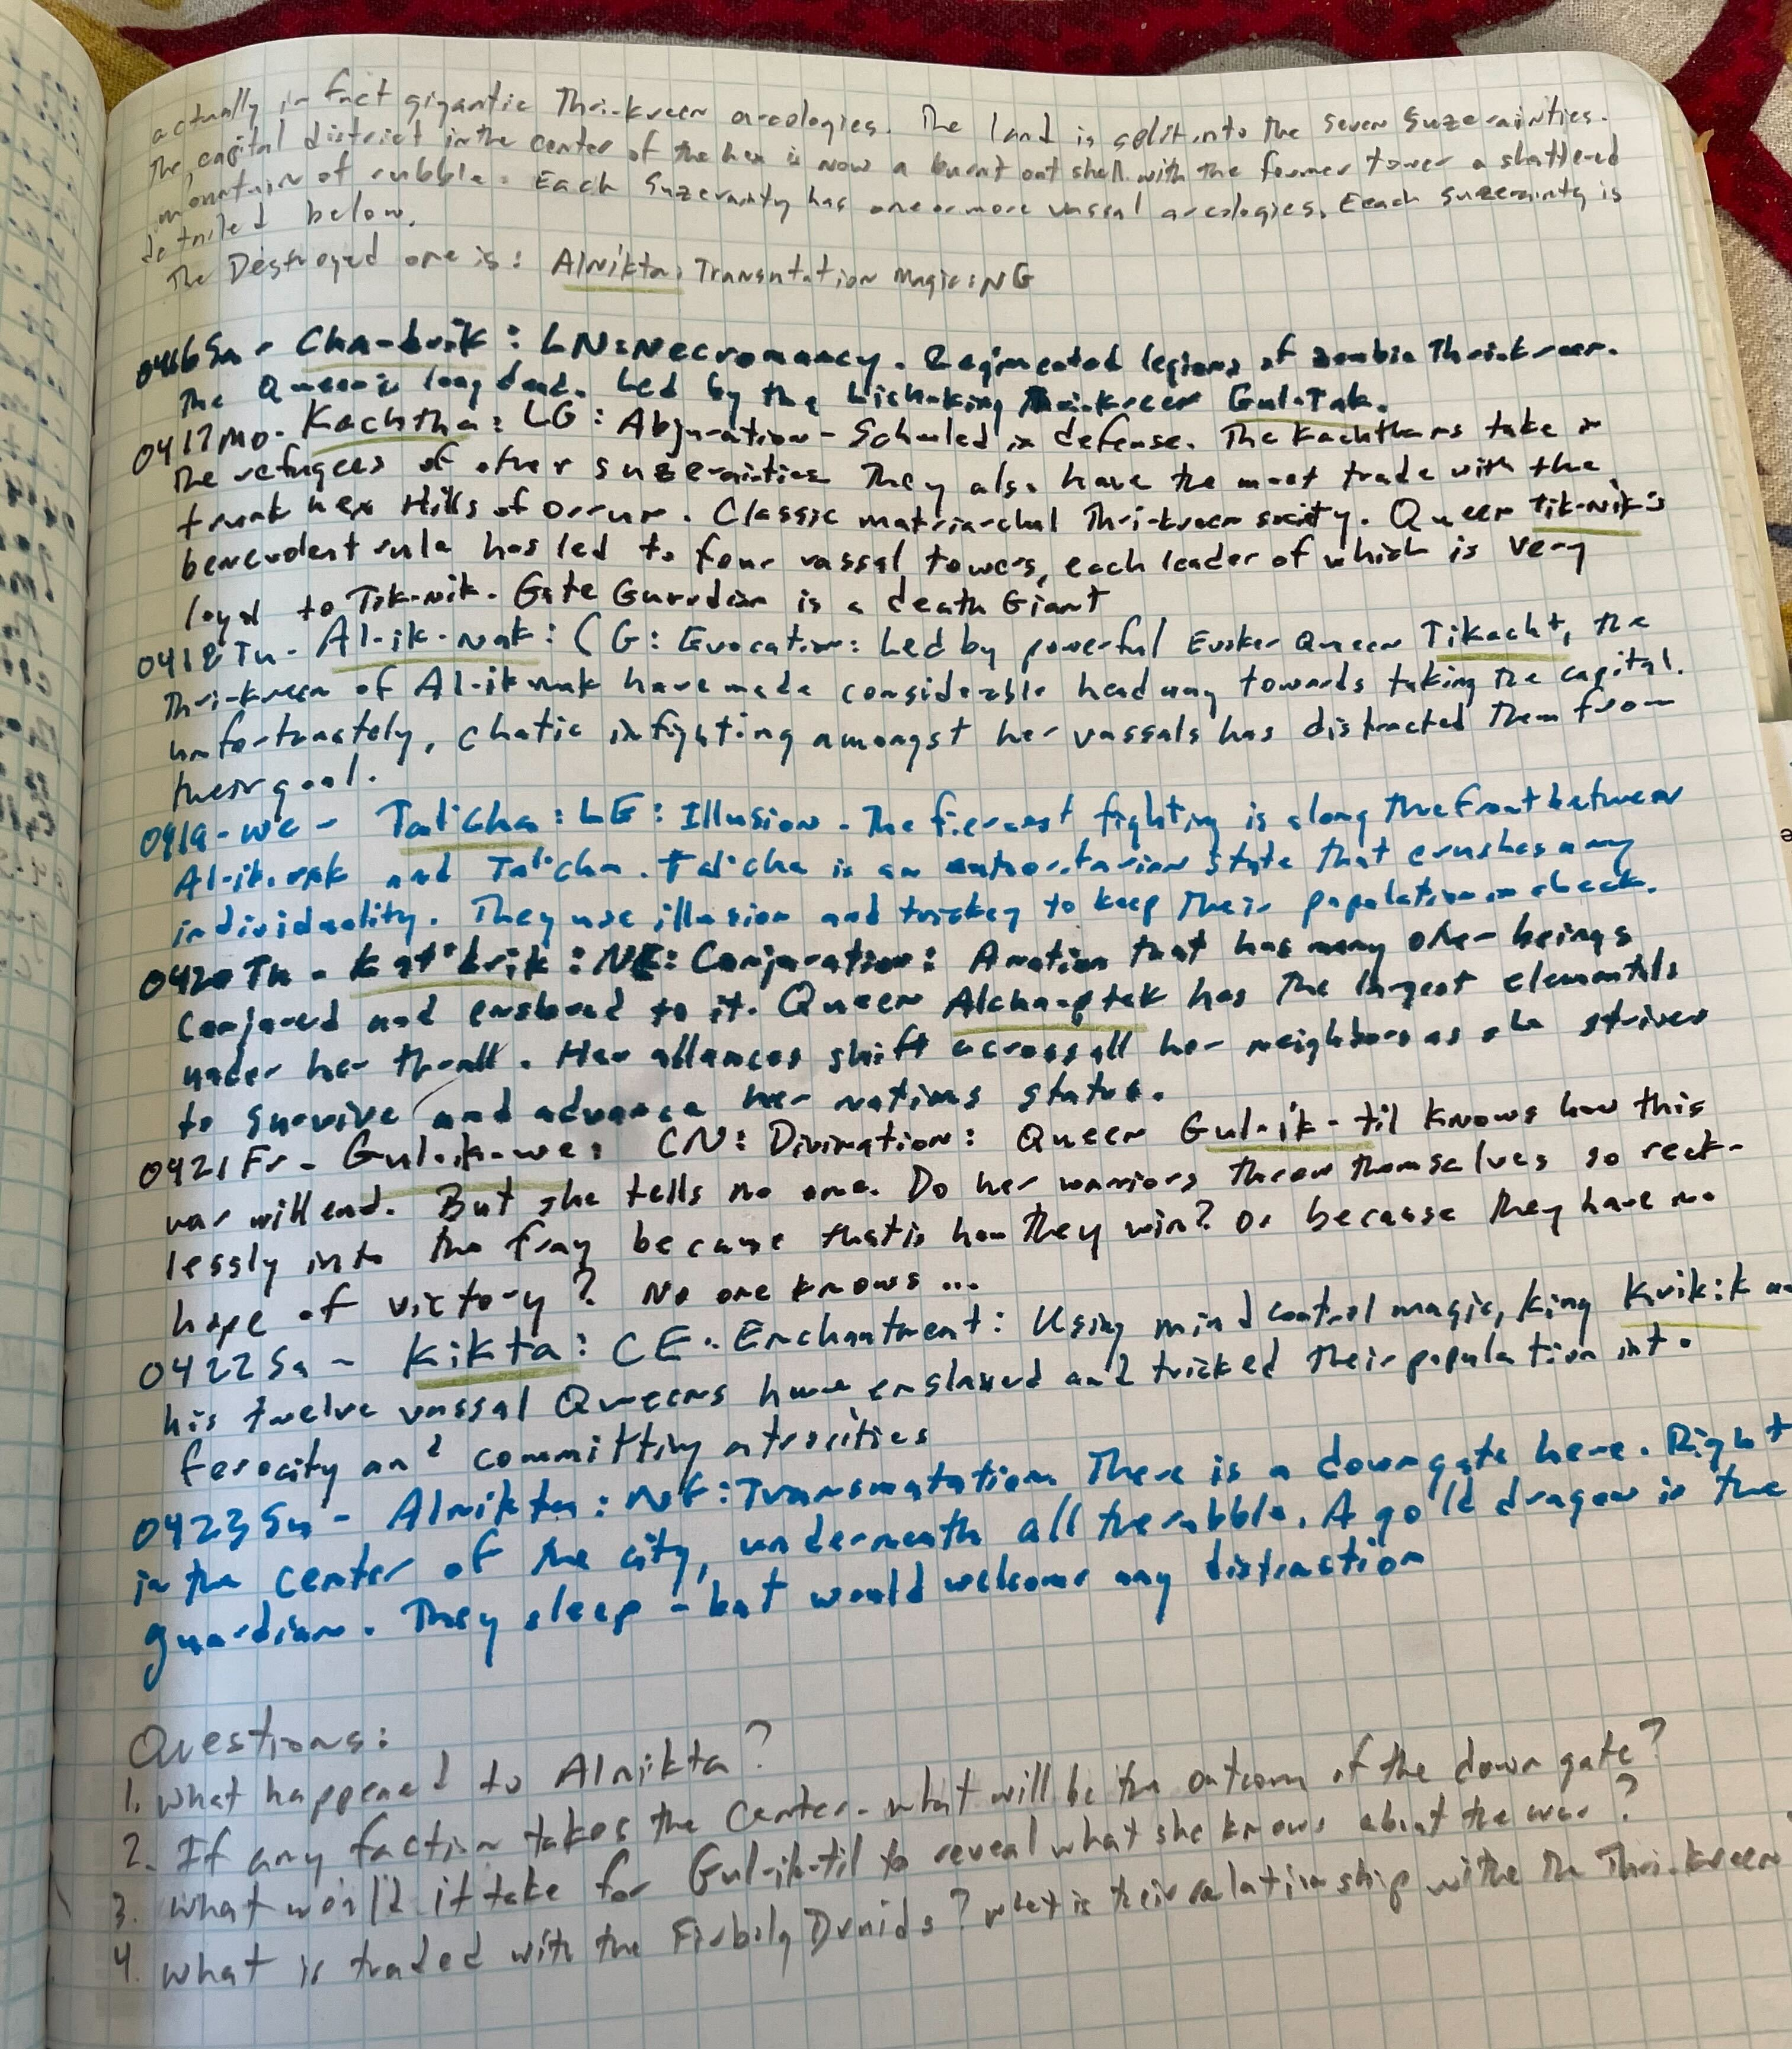 actually in fact gigantic Thri-kreen arcologies. The land is split into the seven Suzerainties.
The capital district in the center of the hex is now a burnt out shell with the former tower a shattered
mountain of rubble. Each Suzerainty has one or more vassal arcologies. Eeach suzerainty is
detailed below.
The Destroyed one is: Alnikta: Transmtation Magic: NG
0416 Su - Cha-brik: LN: Necromancy. Regimented legions of zombie Thri-kreen.
The Queen is long dead. Led by the Lich-king Thri-kreen Gul-Tak.
0417 Mo- Kachtha: LG: Abjuration - Schooled in defense. The Kachthans take in
the refugees of other suzerainties They also have the most trade with the
hex Hills of . Classic matriarchal Thri-kreen society. Queen Tik-nik's
benevolent rule has led to four vassal towers, each leader of which is very
loyal to Tik-nik. Gate Guardian is a death Giant
0418 Tu- Al-ik-nak: CG: Evocation: Led by powerful Evoker Queen Tikacht, the
Thri-kreen of Al-ik-nak have made considerable headway towards taking the capital.
unfortunately, chatic infighting amongst her vassals has distracted them from
their goal.
0419 - We - Tal'Cha: LE: Illusion - The fiercest fighting is along the front between
Al-ik-nak and Tal'cha. Tal'cha is an authoritarian state that crushes any
individuality. They use illusion and trickey to keep their population in check.
0420 Th - Kat'brik: NE: Conjuration: A nation that has many other beings
conjured and enslaved to it. Queen has the largest elementals
under her thrall. Her alliances shift across all her neighbors as she strives
to survive and advance her nations status.
0421 Fr - Gul-ik-we: CN: Divination: Queen Gul-ik-til knows how this
war will end. But she tells no one. Do her warriors throw themselves so reck-
lessly into the fray because that is how they win? Or because they have no
hope of victory? No one knows...
0422 Sa - Kikta: CE: Enchantment: Using mind control magic, King Kvik:k and
his twelve vassal Queens have enslaved and tricked their population into
ferocity and committing atrocities
0423 Su - Alnikta: NG: Transmutation There is a down gate here. Right
in the center of the city, underneath all the rubble. A gold dragon is the
guardian. They sleep - but would welcome any distraction
Questions:
1. What happened to Alnikta?
2. If any faction takes the center - what will be the outcome of the down gate?
3. What would it take for Gul-ik-til to reveal what she knows about the war?
4. What is traded with the Firbolg Druids? what is their relationship withe the Thri-kreen